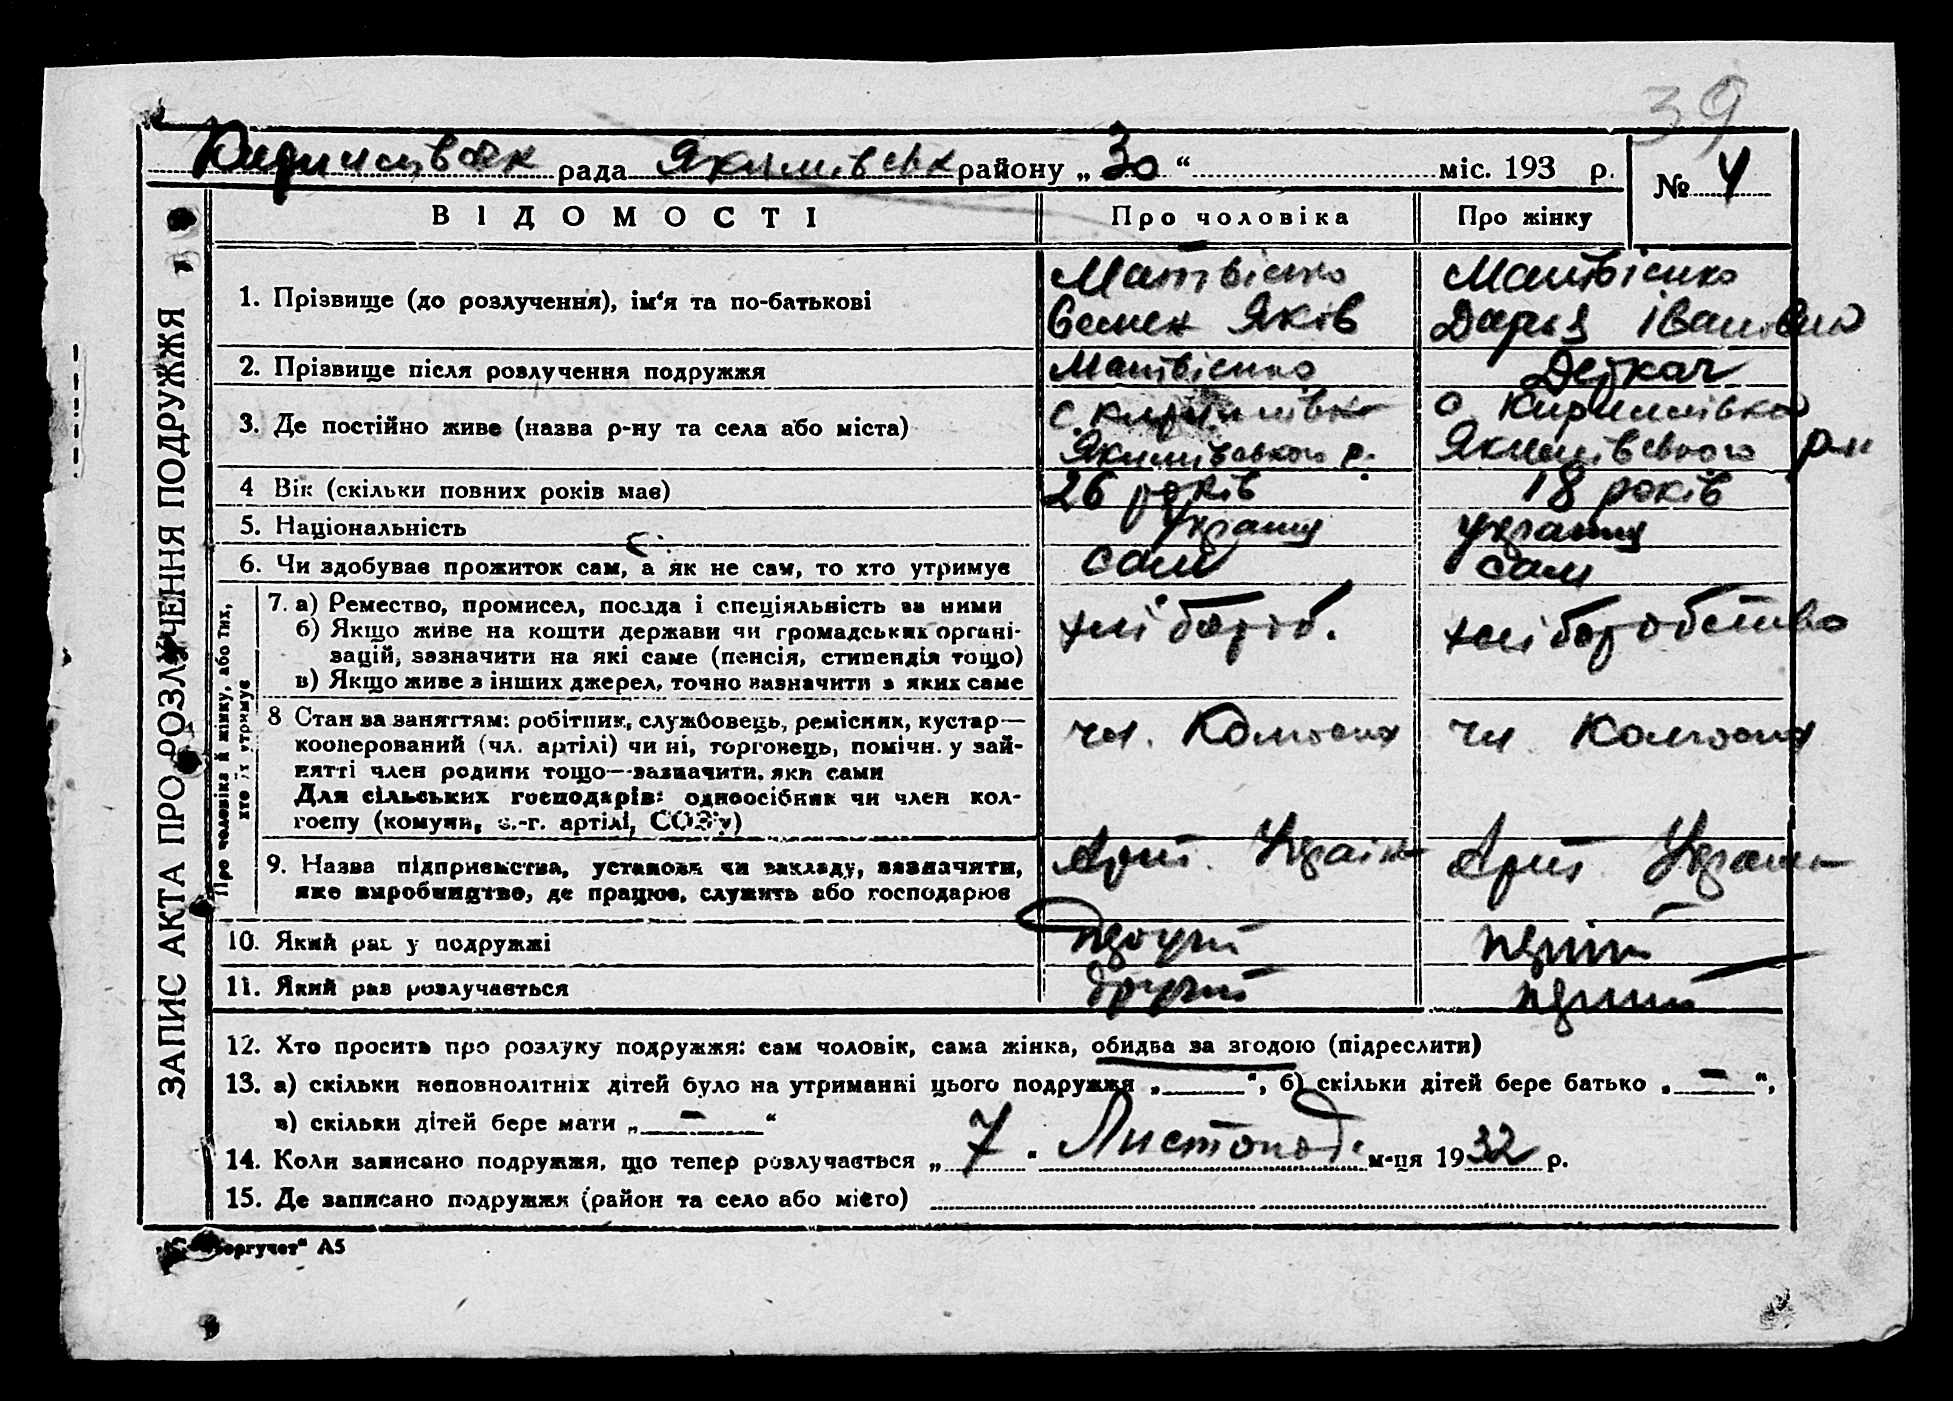 39
Кирилівськ рада Якимівськ району „ 30 “ міс. 193 р.
№ 4
ЗАПИС АКТА ПРО РОЗЛУЧЕННЯ ПОДРУЖЖЯ
ВІДОМОСТІ Про чоловіка Про жінку
1. Прізвище (до розлучення), ім‘я та по-батькові
Матвієнко
Семен Яків
Матвієнко
Дарія Іванівна
2. Прізвище після розлучення подружжя Матвієнко Деркач
3. Де постійно живе (назва р-ну та села або міста)
с. Кирилівка
Якимівського р.
с Кирилівка
Якимівського р-н
4 Вік (скільки повних років має) 26 років 18 років
5. Національність українц українц
6. Чи здобуває прожиток сам, а як не сам, то хто утримує сам сам
Про чоловіка й жінку, або тих,
хто їх утримує
7. а) Ремество, промисел, посада і спеціяльність за ними
б) Якщо живе на кошти держави чи громадських органі-
зацій, зазначити на які саме (пенсія, стипендія тощо)
в) Якщо живе з інших джерел, точно зазначити з яких саме
хліборіб.
хліборобство
8 Стан за заняттям: робітник, службовець, ремісник, кустар—
кооперований (чл. артілі) чи ні, торговець, помічн. у зай-
нятті член родини тощо—зазначити, яки сами
Для сільських господарів: одноосібник чи член кол-
госпу (комуни, с.-г. артілі, СОЗ'у)
чл. Колгосп
чл Колгосп
9. Назва підприємства, установи чи закладу, зазначити,
яке виробництво, де працює, служить або господарює
Арт. Україн
Арт. Україн
10. Який раз у подружжі другий перший
11. Який раз розлучається другий перший
12. Хто просить про розлуку подружжя: сам чоловік, сама жінка, обидва за згодою (підреслити)
13. а) скільки неповнолітніх дітей було на утриманні цього подружжя „ “, б) скільки дітей бере батько „ — “,
в) скільки дітей бере мати „ — “
14. Коли записано подружжя, що тепер розлучається „ 7 “ Листопад м-ця 1932 р.
15. Де записано подружжя (район та село або місто)
А5